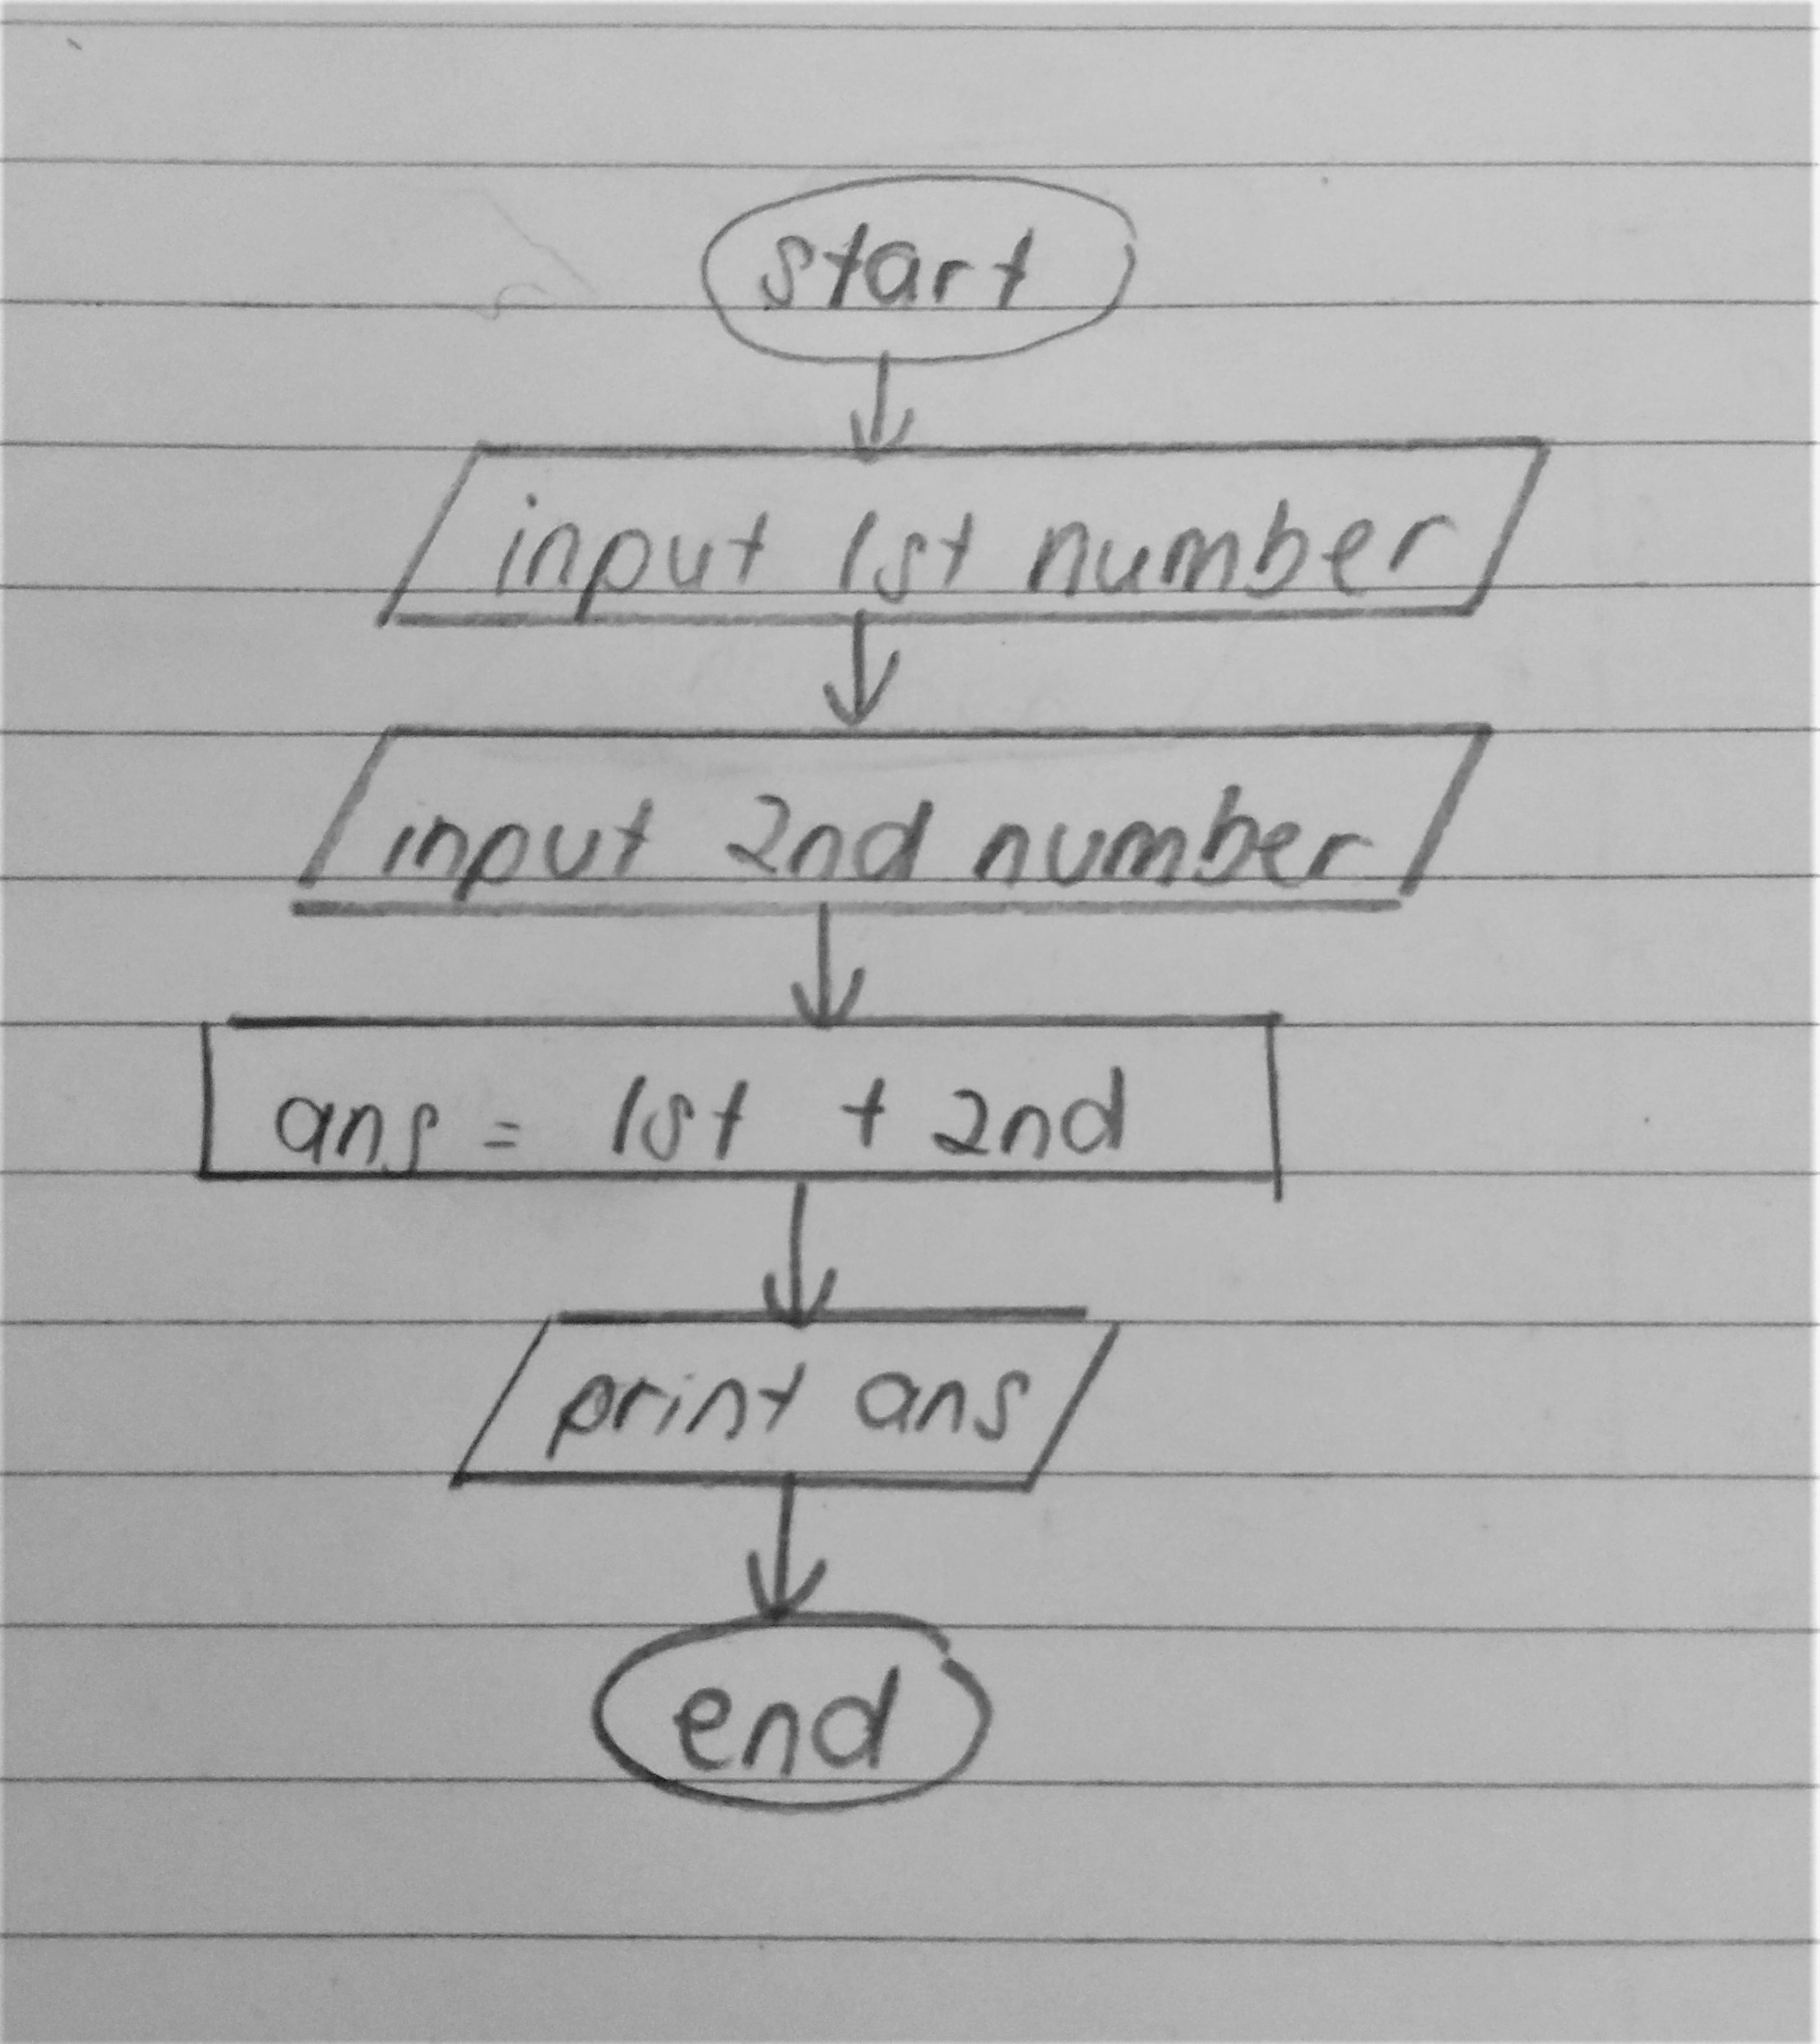 start
input 1st number
input 2nd number
ans = 1st + 2nd
print ans
end